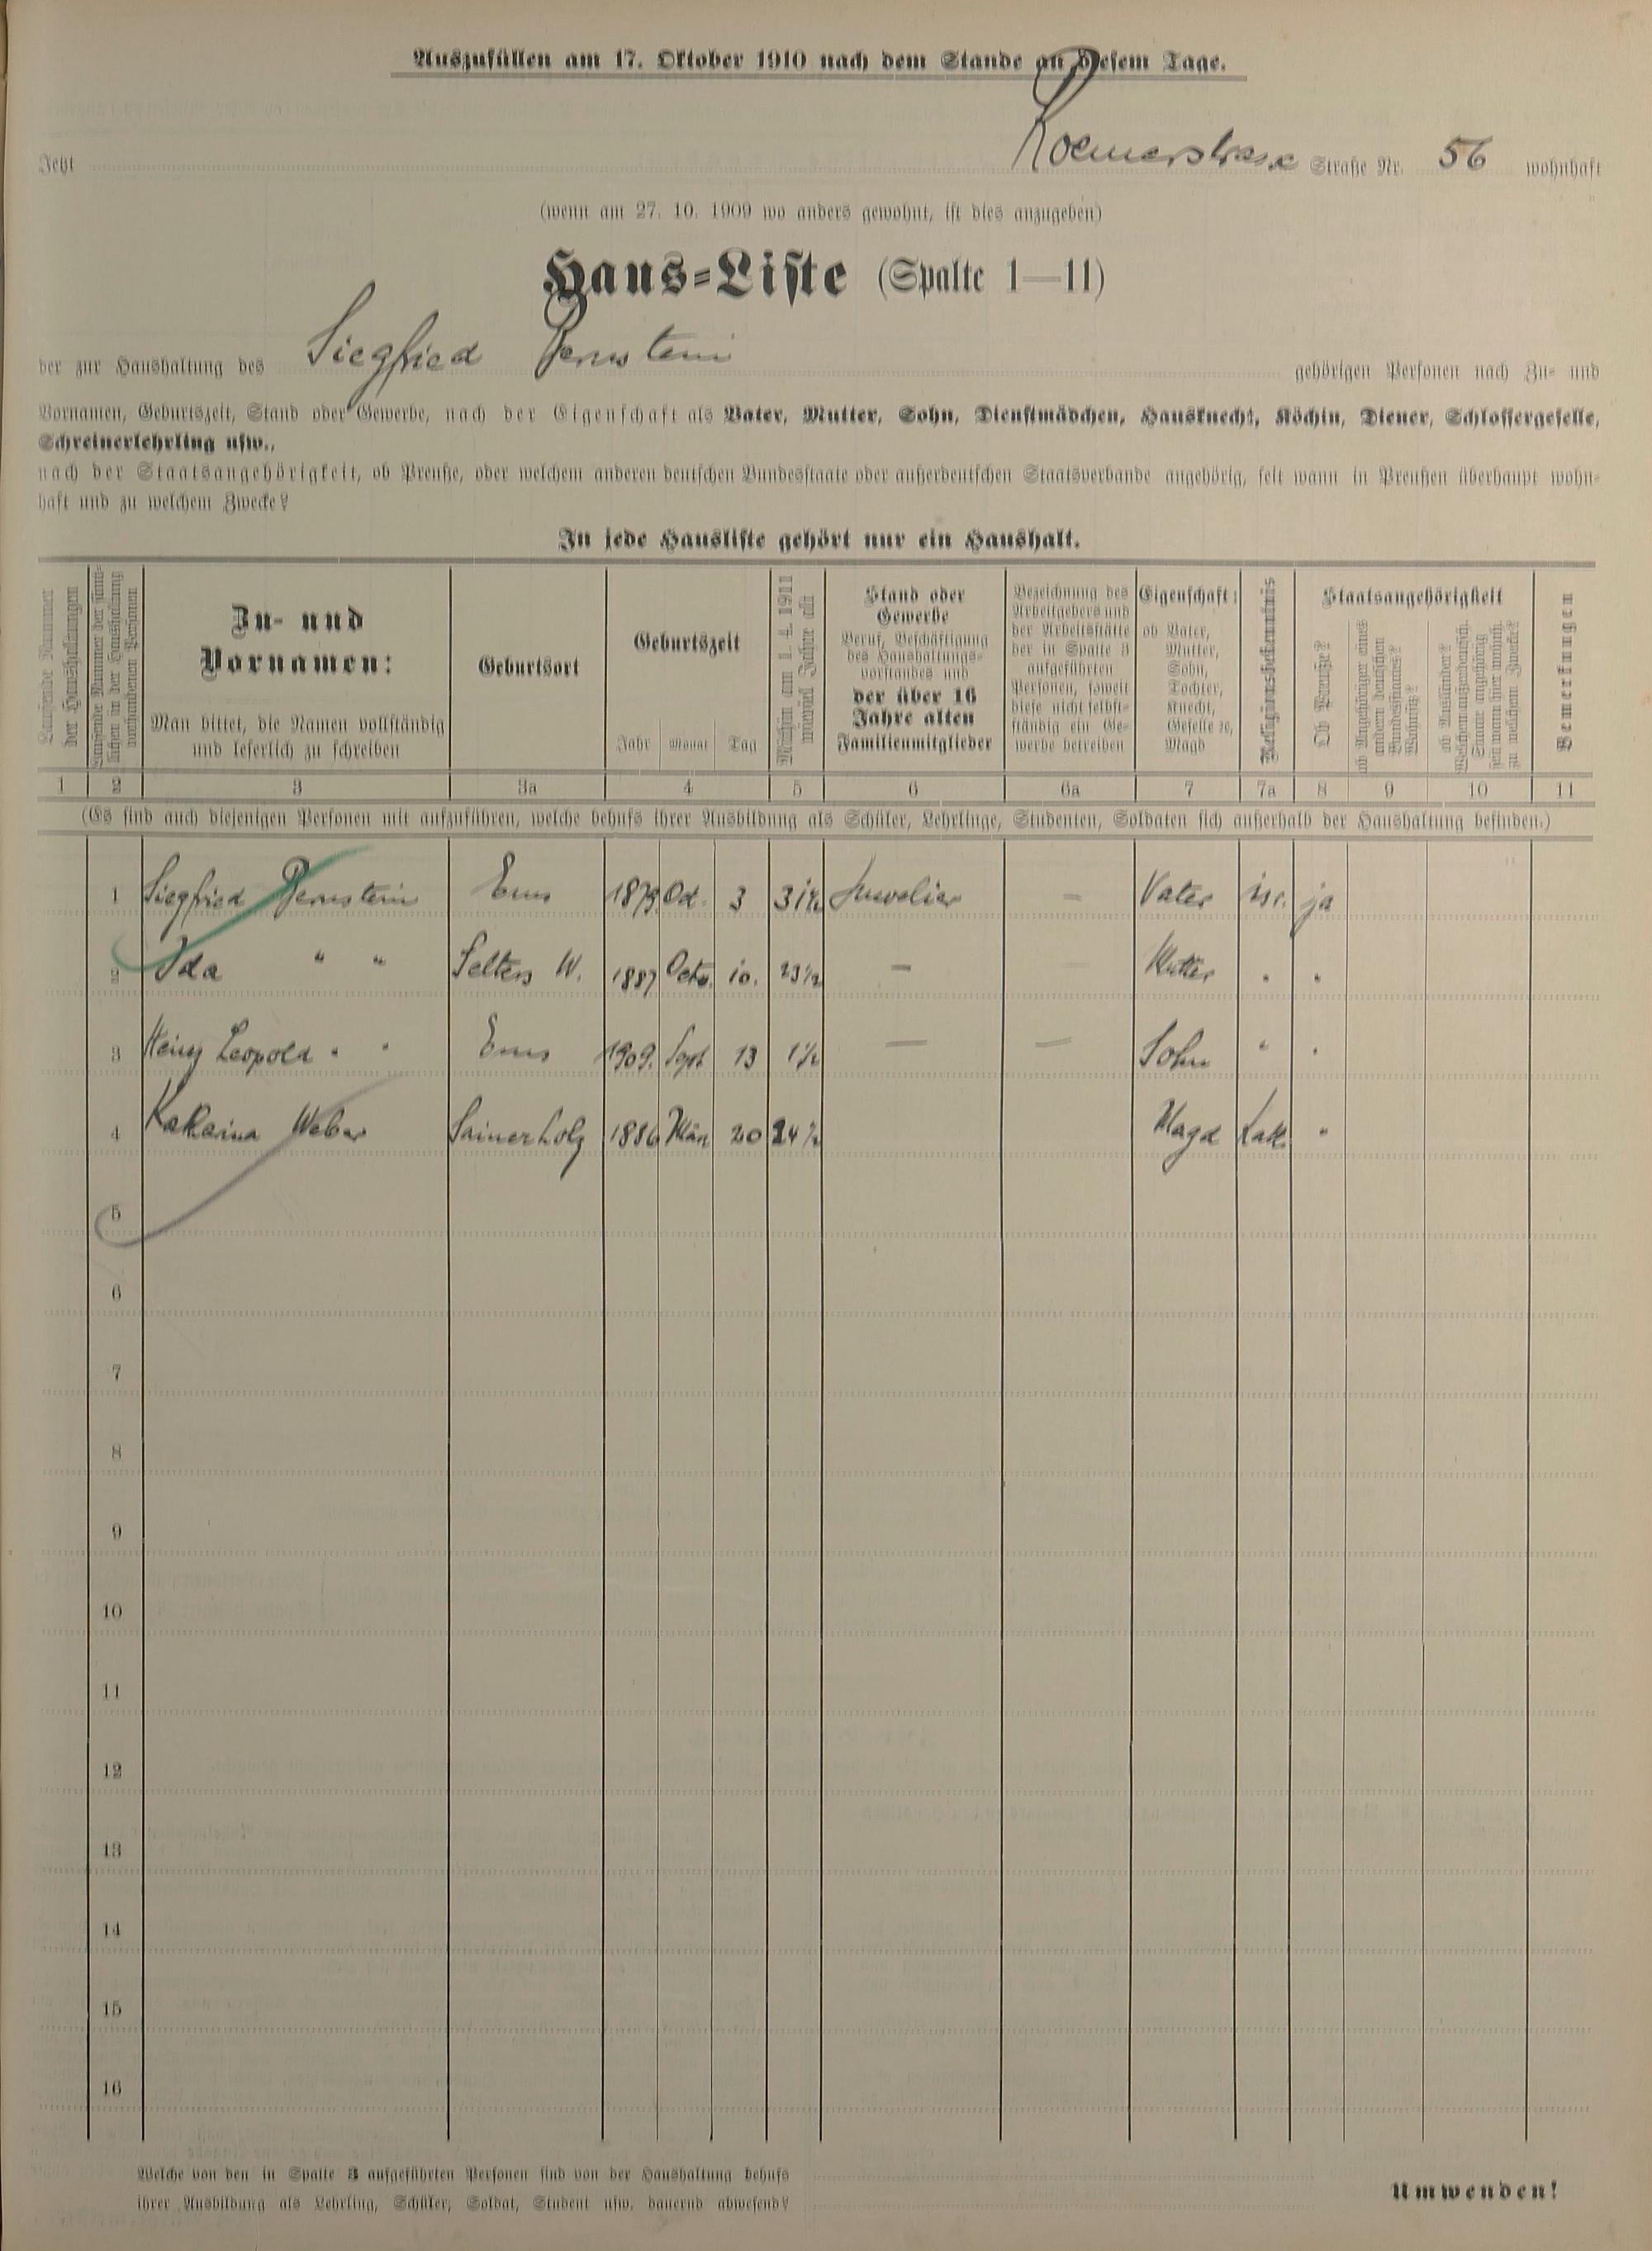 Auszufüllen am 17. Oktober 1910 nach dem Stande an diesem Tage.
Jetzt Roemerstrasse Straße Nr. 56 wohnhaft
(wenn am 27. 10. 1909 wo anders gewohnt, ist dies anzugeben)
Haus-Liste (Spalte 1—11)
der zur Haushaltung des Siegfried Bernstein gehörigen Personen nach Zu- und
Vornamen, Geburtszeit, Stand oder Gewerbe, nach der Eigenschaft als Vater, Mutter, Sohn, Dienstmädchen, Hausknecht, Köchin, Diener, Schlossergeselle,
Schreinerlehrling usw.,
nach der Staatsangehörigkeit, ob Preuße, oder welchem anderen deutschen Bundesstaate oder außerdeutschen Staatsverbande angehörig, seit wann in Preußen überhaupt wohn-
haft und zu welchem Zwecke?
In jede Hausliste gehört nur ein Haushalt.
Laufende Nummer
der Haushaltungen
Laufende Nummer der sämt-
lichen in der Haushaltung
vorhandenen Personen
Zu- und
Vornamen:
Man bittet, die Namen vollständig
und leserlich zu schreiben
Geburtsort
Geburtszeit
Jahr Monat Tag
Mithin am 1. 4. 1911
wieviel Jahre alt
Stand oder
Gewerbe
Beruf, Beschäftigung
des Haushaltungs-
vorstandes und
der über 16
Jahre alten
Familienmitglieder
Bezeichnung des
Arbeitgebers und
der Arbeitsstätte
der in Spalte 3
aufgeführten
Personen, soweit
diese nicht selbst-
ständig ein Ge-
werbe betreiben
Eigenschaft:
ob Vater,
Mutter,
Sohn,
Tochter,
Knecht,
Geselle ꝛc,
Magd
Religionsbekenntnis
Staatsangehörigkeit
Ob Preuße?
ob Angehöriger eines
andern deutschen
Bundesstaates?
Wohnsitz?
ob Ausländer?
Welchem außerdeutsch.
Staate angehörig
seit wann hier wohnh.
zu welchem Zwecke?
Bemerkungen
1 2 3 3a 4 5 6 6a 7 7a 8 9 10 11
(Es sind auch diejenigen Personen mit aufzuführen, welche behufs ihrer Ausbildung als Schüler, Lehrlinge, Studenten, Soldaten sich außerhalb der Haushaltung befinden.)
1 Siegfried Bernstein Ems 1879 Oct. 3 31½ Juwelier — Vater isr. ja
2 Ida " " Selters W. 1887 Octo. 10. 23½ — — Mutter " "
3 Heinz Leopold " " Ems 1909. Sept 13 1½ — — Sohn " "
4 Katharina Weber Sainerholz 1886 März 20 24½ Magd kath. "
5
6
7
8
9
10
11
12
13
14
15
16
Welche von den in Spalte 3 aufgeführten Personen sind von der Haushaltung behufs
ihrer Ausbildung als Lehrling, Schüler, Soldat, Student usw. dauernd abwesend?
Umwenden!